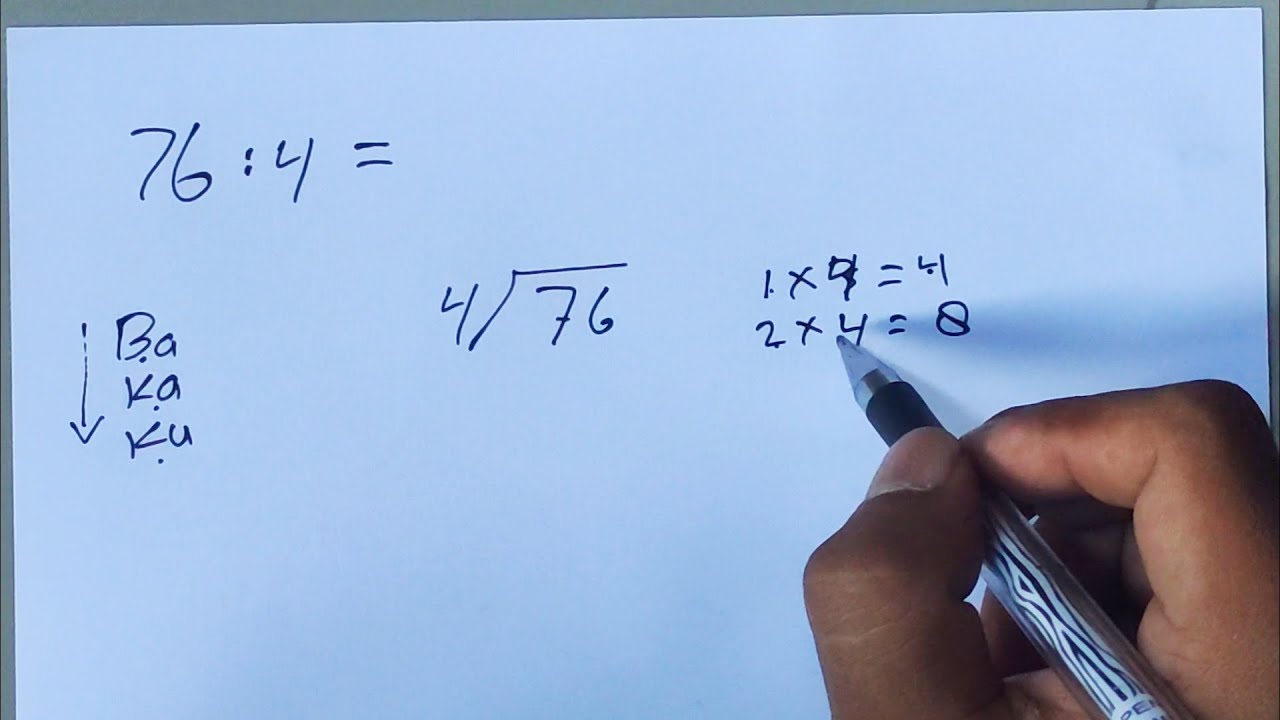 76 : 4 =
4 76
1 x 4 = 4
2 x 4 = 8
Ba
Ka
Ku